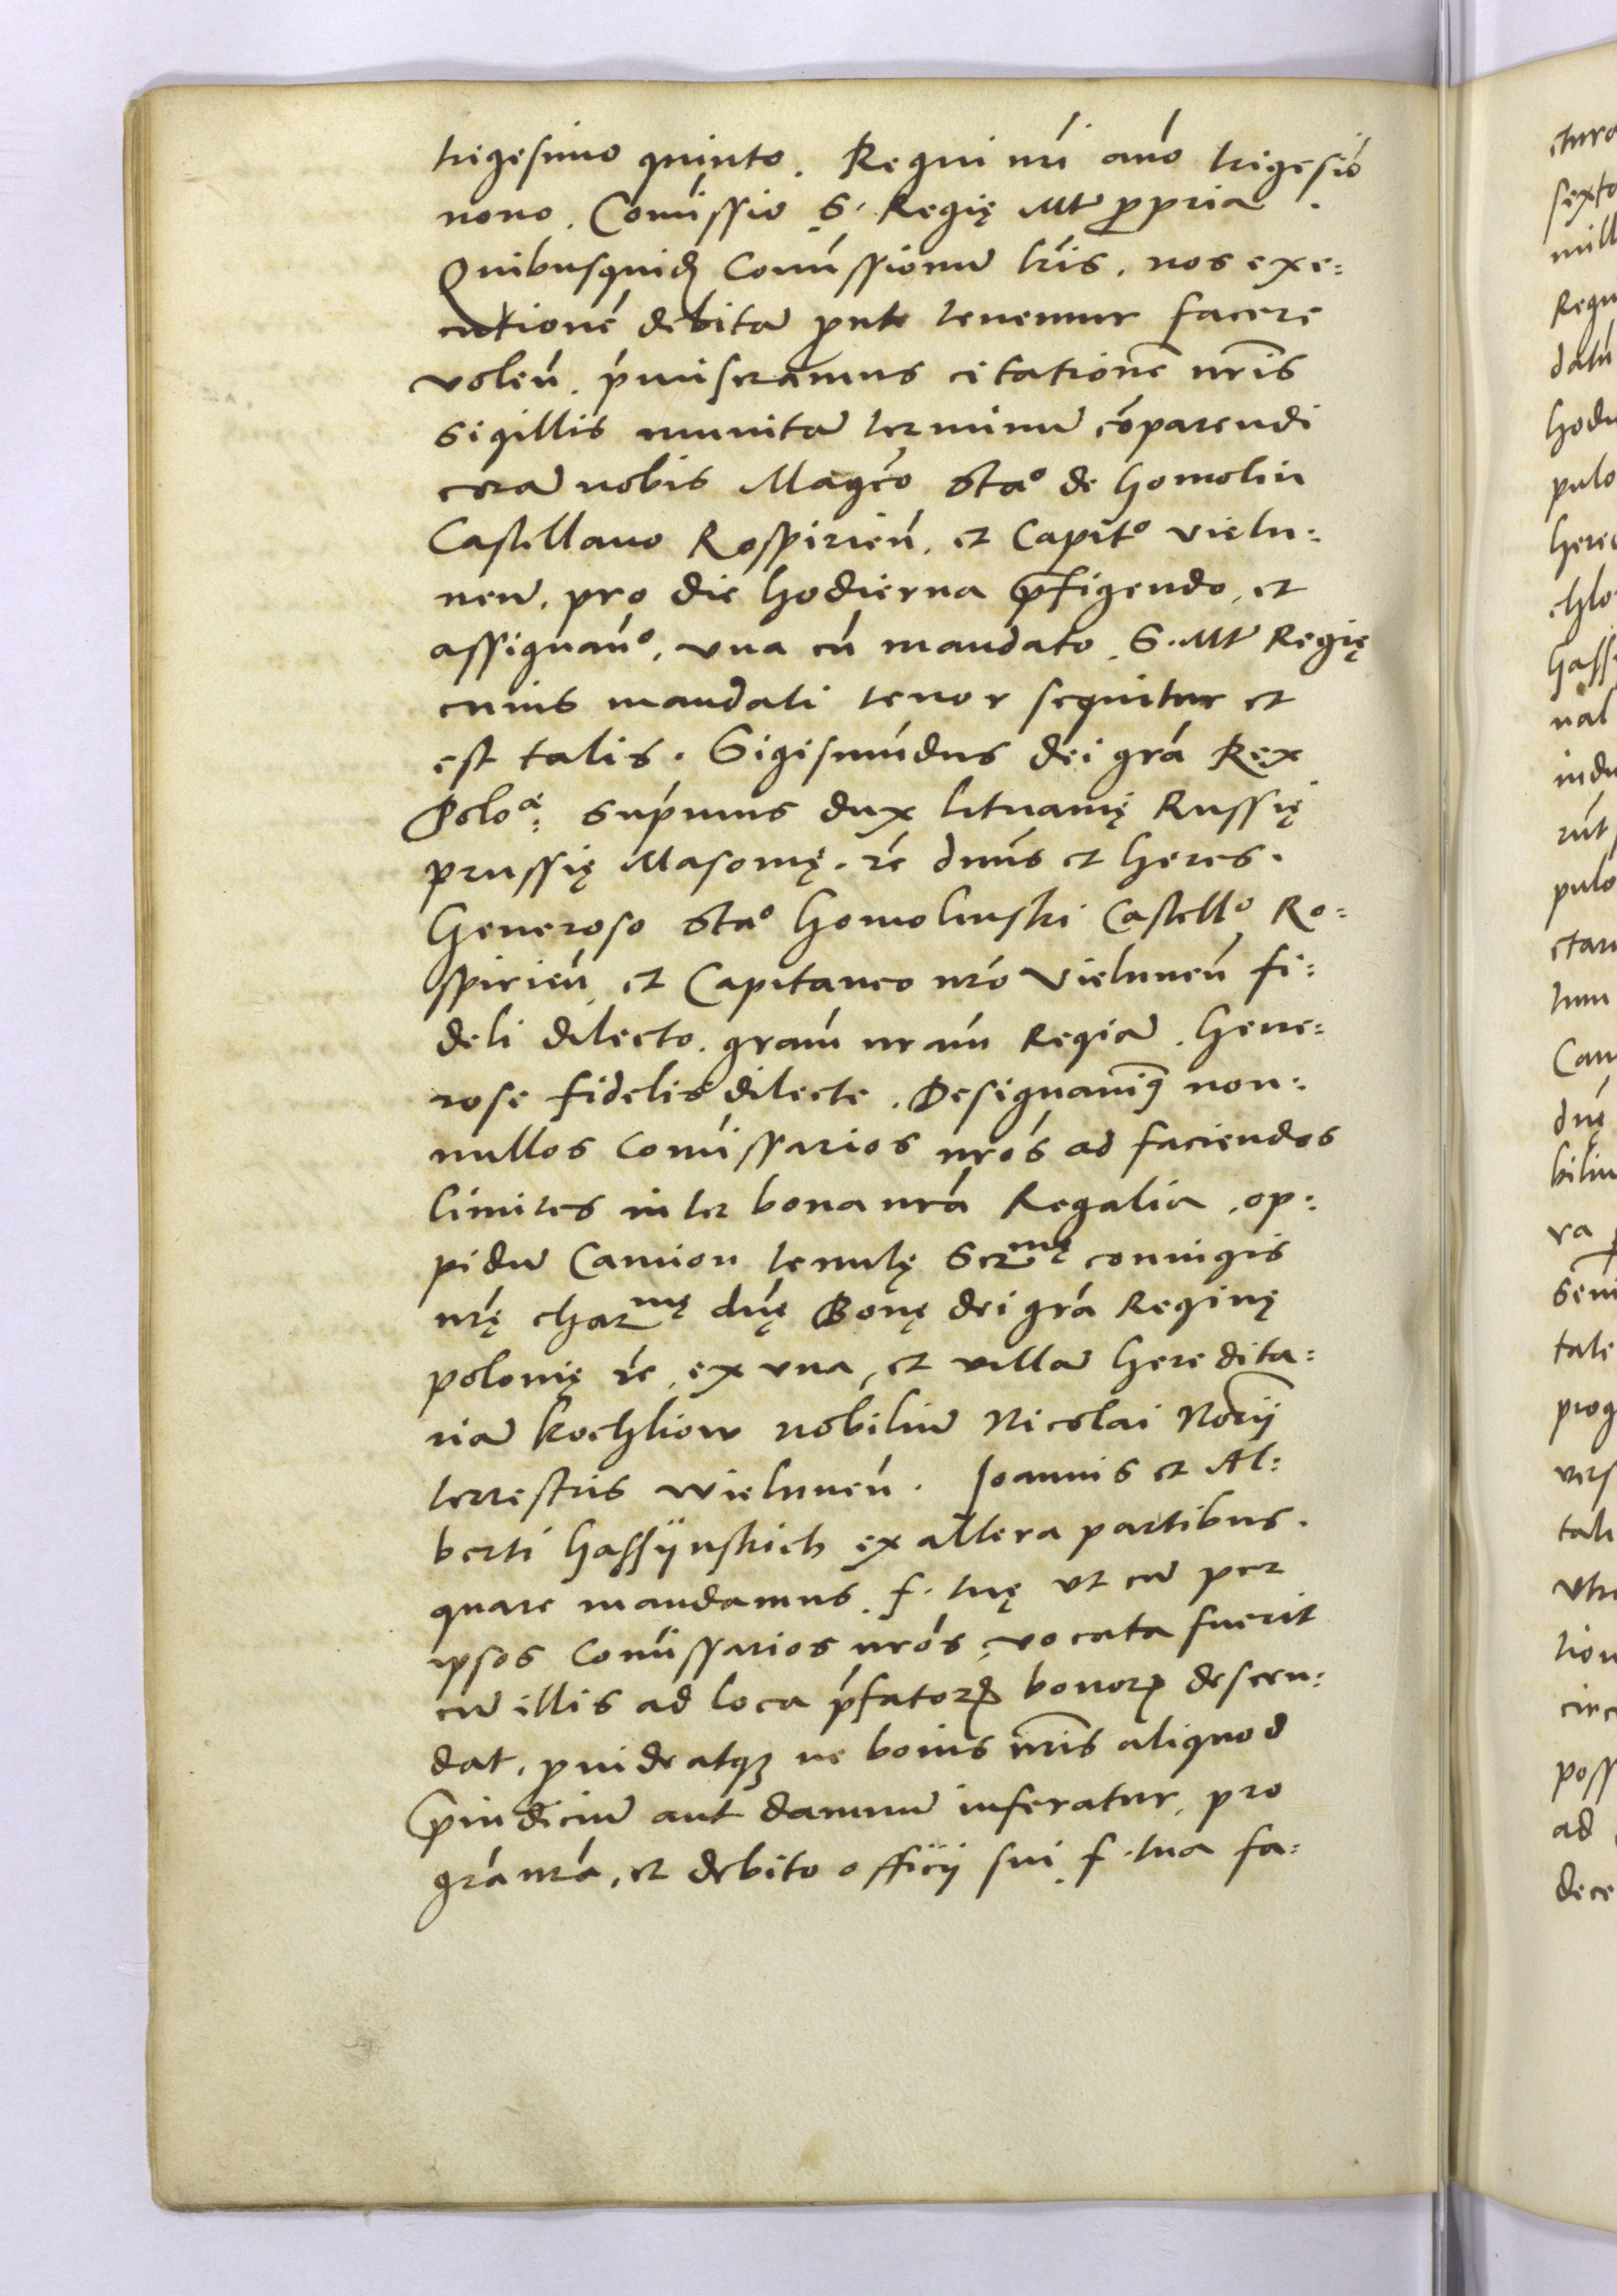 trigesimo quinto. Regni nŕi año trigesió
nono. Comissio S. Regię Mtis propria.
Quibusquidem Comissionum lŕis, nos exe:
cutionem debitam prout tenemur facere
voleń. pŕmiseramus citationē nrīs
sigillis munitam terminum cōparendi
coram nobis Magco Stao de homolin
Castellano Rospirień. et Capitº vielu:
nen, pro die hodierna pfigendo, et
assignańº, vna cū mandato S. Mtis Regię
cuius mandati tenor sequitur et
est talis. Sigismūdus dei grá Rex
Poloae: supŕmus dux lituanię Russię
prussię Masouię. ŕc dnús et heres.
Generoso Stao homolinski Castellº Ro:
spirień, et Capitaneo nró Vielunień fi:
deli dilecto. gram nram Regiam. Gene:
rose fidelis dilecte. Designauimq non:
nullos Comissarios nrós ad faciendos
limites inter bona nrá Regalia, op:
pidum Camion tenutę Sermę coniugis
nrę charmę dnę Bonę dei grá Reginę
polonię ŕc, ex una, et villam heredita:
riam kochliow nobilium Nicolai Norij
terrestris wielunień. Joannis et Al:
berti Gassijnskich ex altera partibus.
quare mandamus. f. tuę vt cum per
ipsos Comissarios nrós, vocata fuerit
cum illis ad loca pŕfatorum bonorum descen:
dat, prouideatque ne bonis nrīs aliquod
pręiudicium aut damnum inferatur, pro
grá nrá, et debito officij sui. f. tua fa: